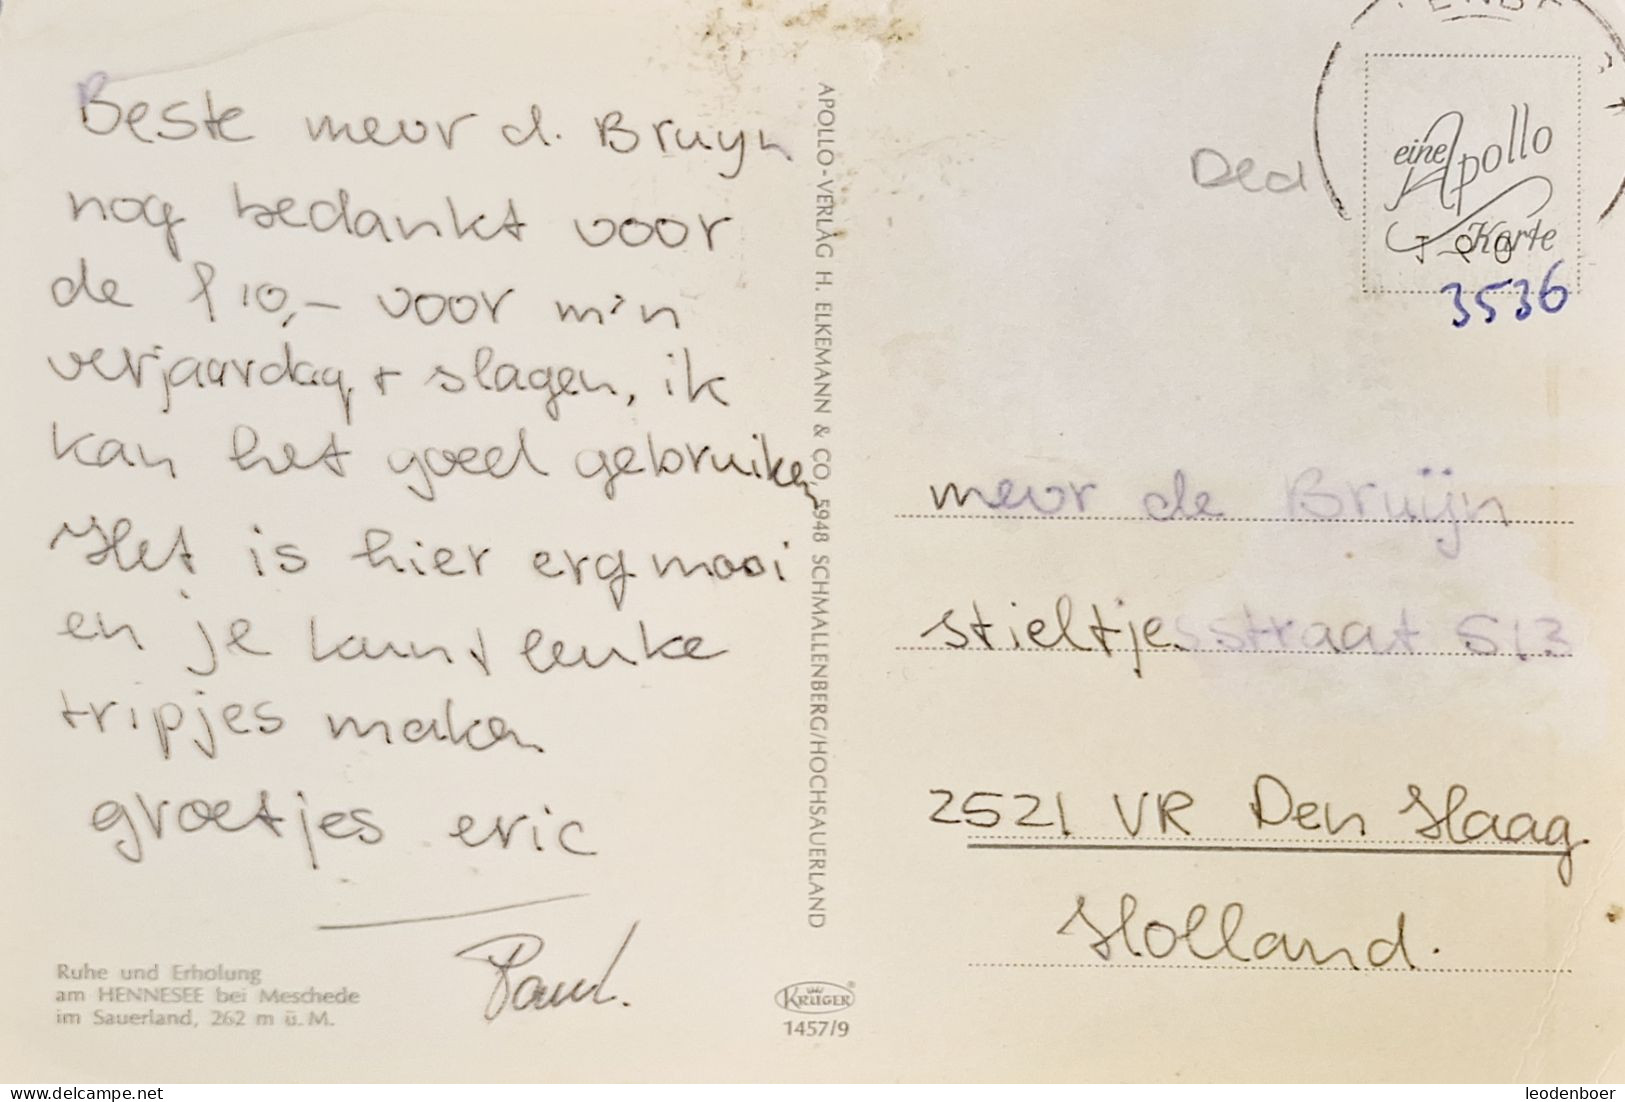 Beste mevr d. Bruyn
nog bedankt voor
de f 10,- voor m'n
verjaardag, + slagen, ik
kan het goed gebruiken
Het is hier erg mooi
en je kunt leuke
tripjes maken
groetjes eric
Paul.
Ruhe und Erholung
am HENNESEE bei Meschede
im Sauerland, 262 m ü. M.
APOLLO-VERLAG H. ELKEMANN & CO, 5948 SCHMALLENBERG/HOCHSAUERLAND
KRÜGER®
1457/9
eine Apollo
Karte
3536
mevr de Bruijn
stieltjesstraat 513
2521 VR Den Haag
Holland.
delcampe.net
leodenboer